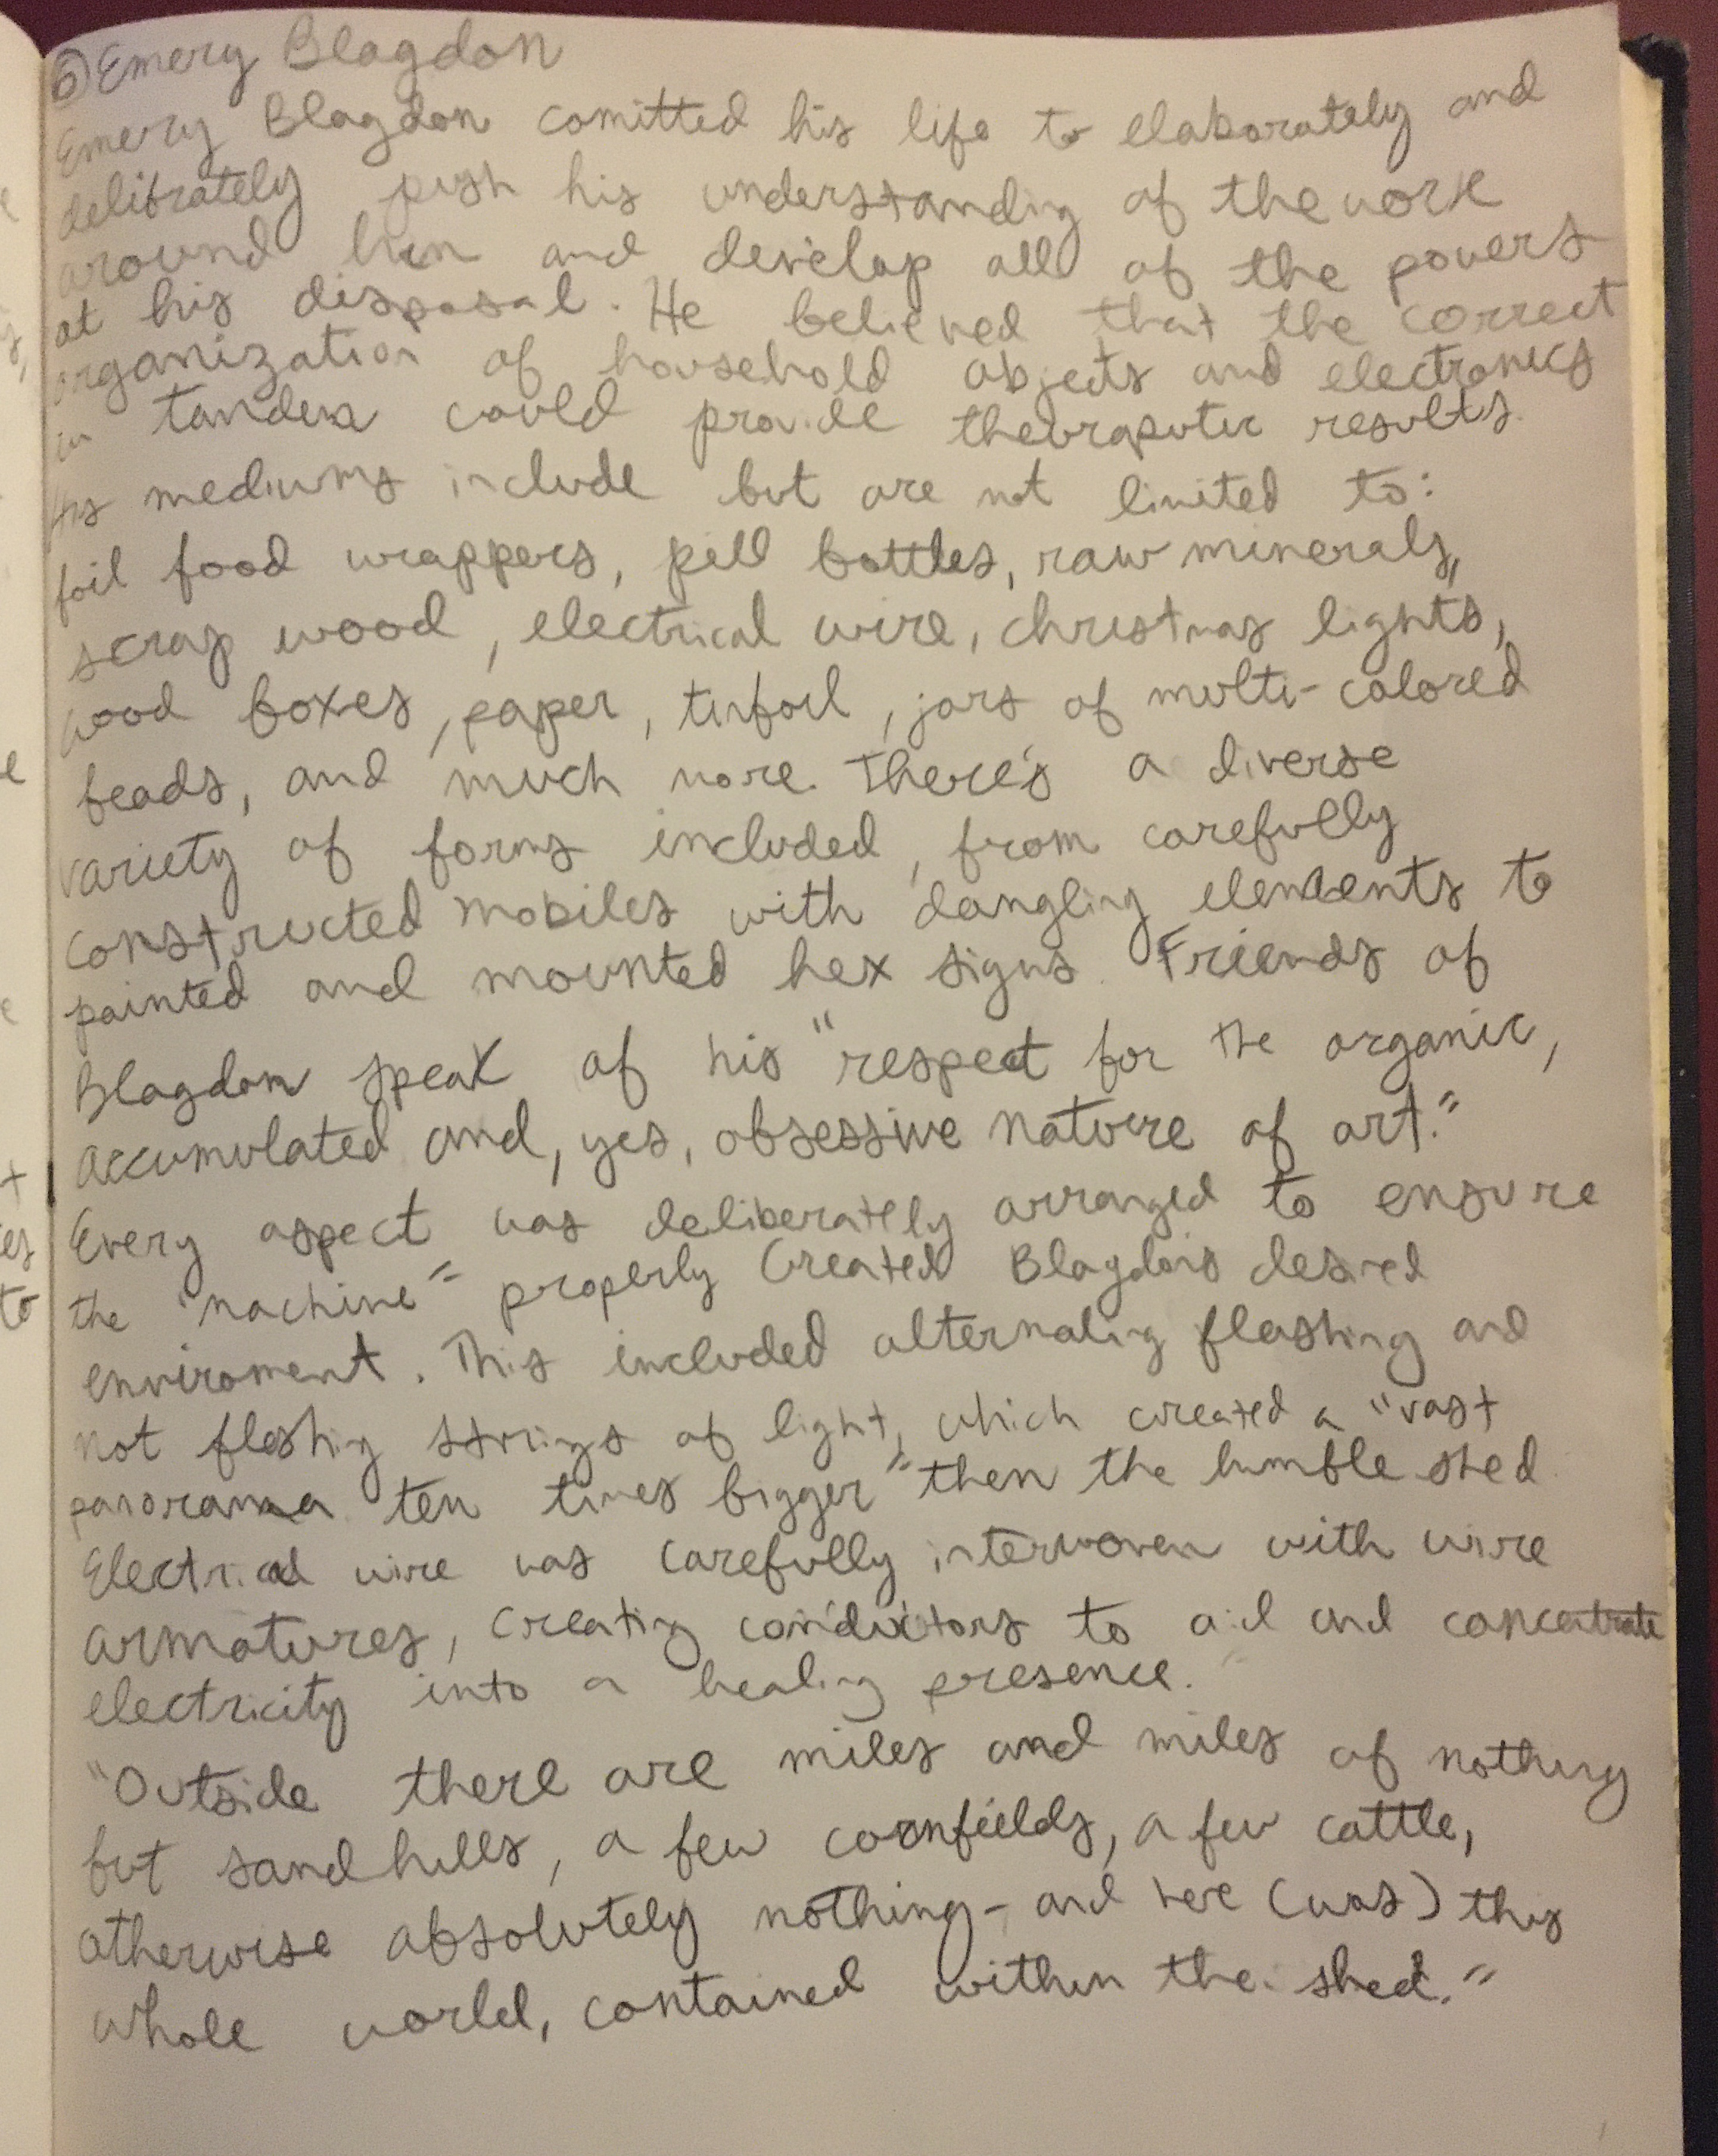 ⑥ Emery Blagdon
Emery Blagdon comitted his life to elaborately and
delibrately push his understanding of the work
around him and develop all of the powers
at his disposal. He believed that the correct
organization of household objects and electronics
in tandem could provide theuraputic results.
His mediums include but are not limited to:
foil food wrappers, pill bottles, raw minerals,
scrap wood, electrical wire, christmas lights,
wood boxes, paper, tinfoil, jars of multi-colored
beads, and much more. There's a diverse
variety of forms included, from carefully
constructed mobiles with dangling elements to
painted and mounted hex signs. Friends of
Blagdon speak of his "respect for the organic,
accumulated and, yes, obsessive nature of art."
Every aspect was deliberately arranged to ensure
the "machine" properly created Blagdon's desired
enviroment. This included alternating flashing and
not flashing strings of light, which created a "vast
panorama ten times bigger" then the humble shed
Electrical wire was carefully interwoven with wire
armatures, creating conductors to aid and concentrate
electricity into a healing presence.
"Outside there are miles and miles of nothing
but sandhills, a few cornfields, a few cattle,
otherwise absolutely nothing - and here (was) this
whole world, contained within the shed."